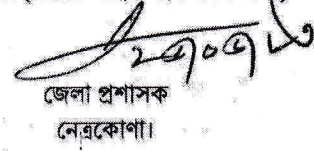 জেলা প্রশাসক
নেত্রকোণা।